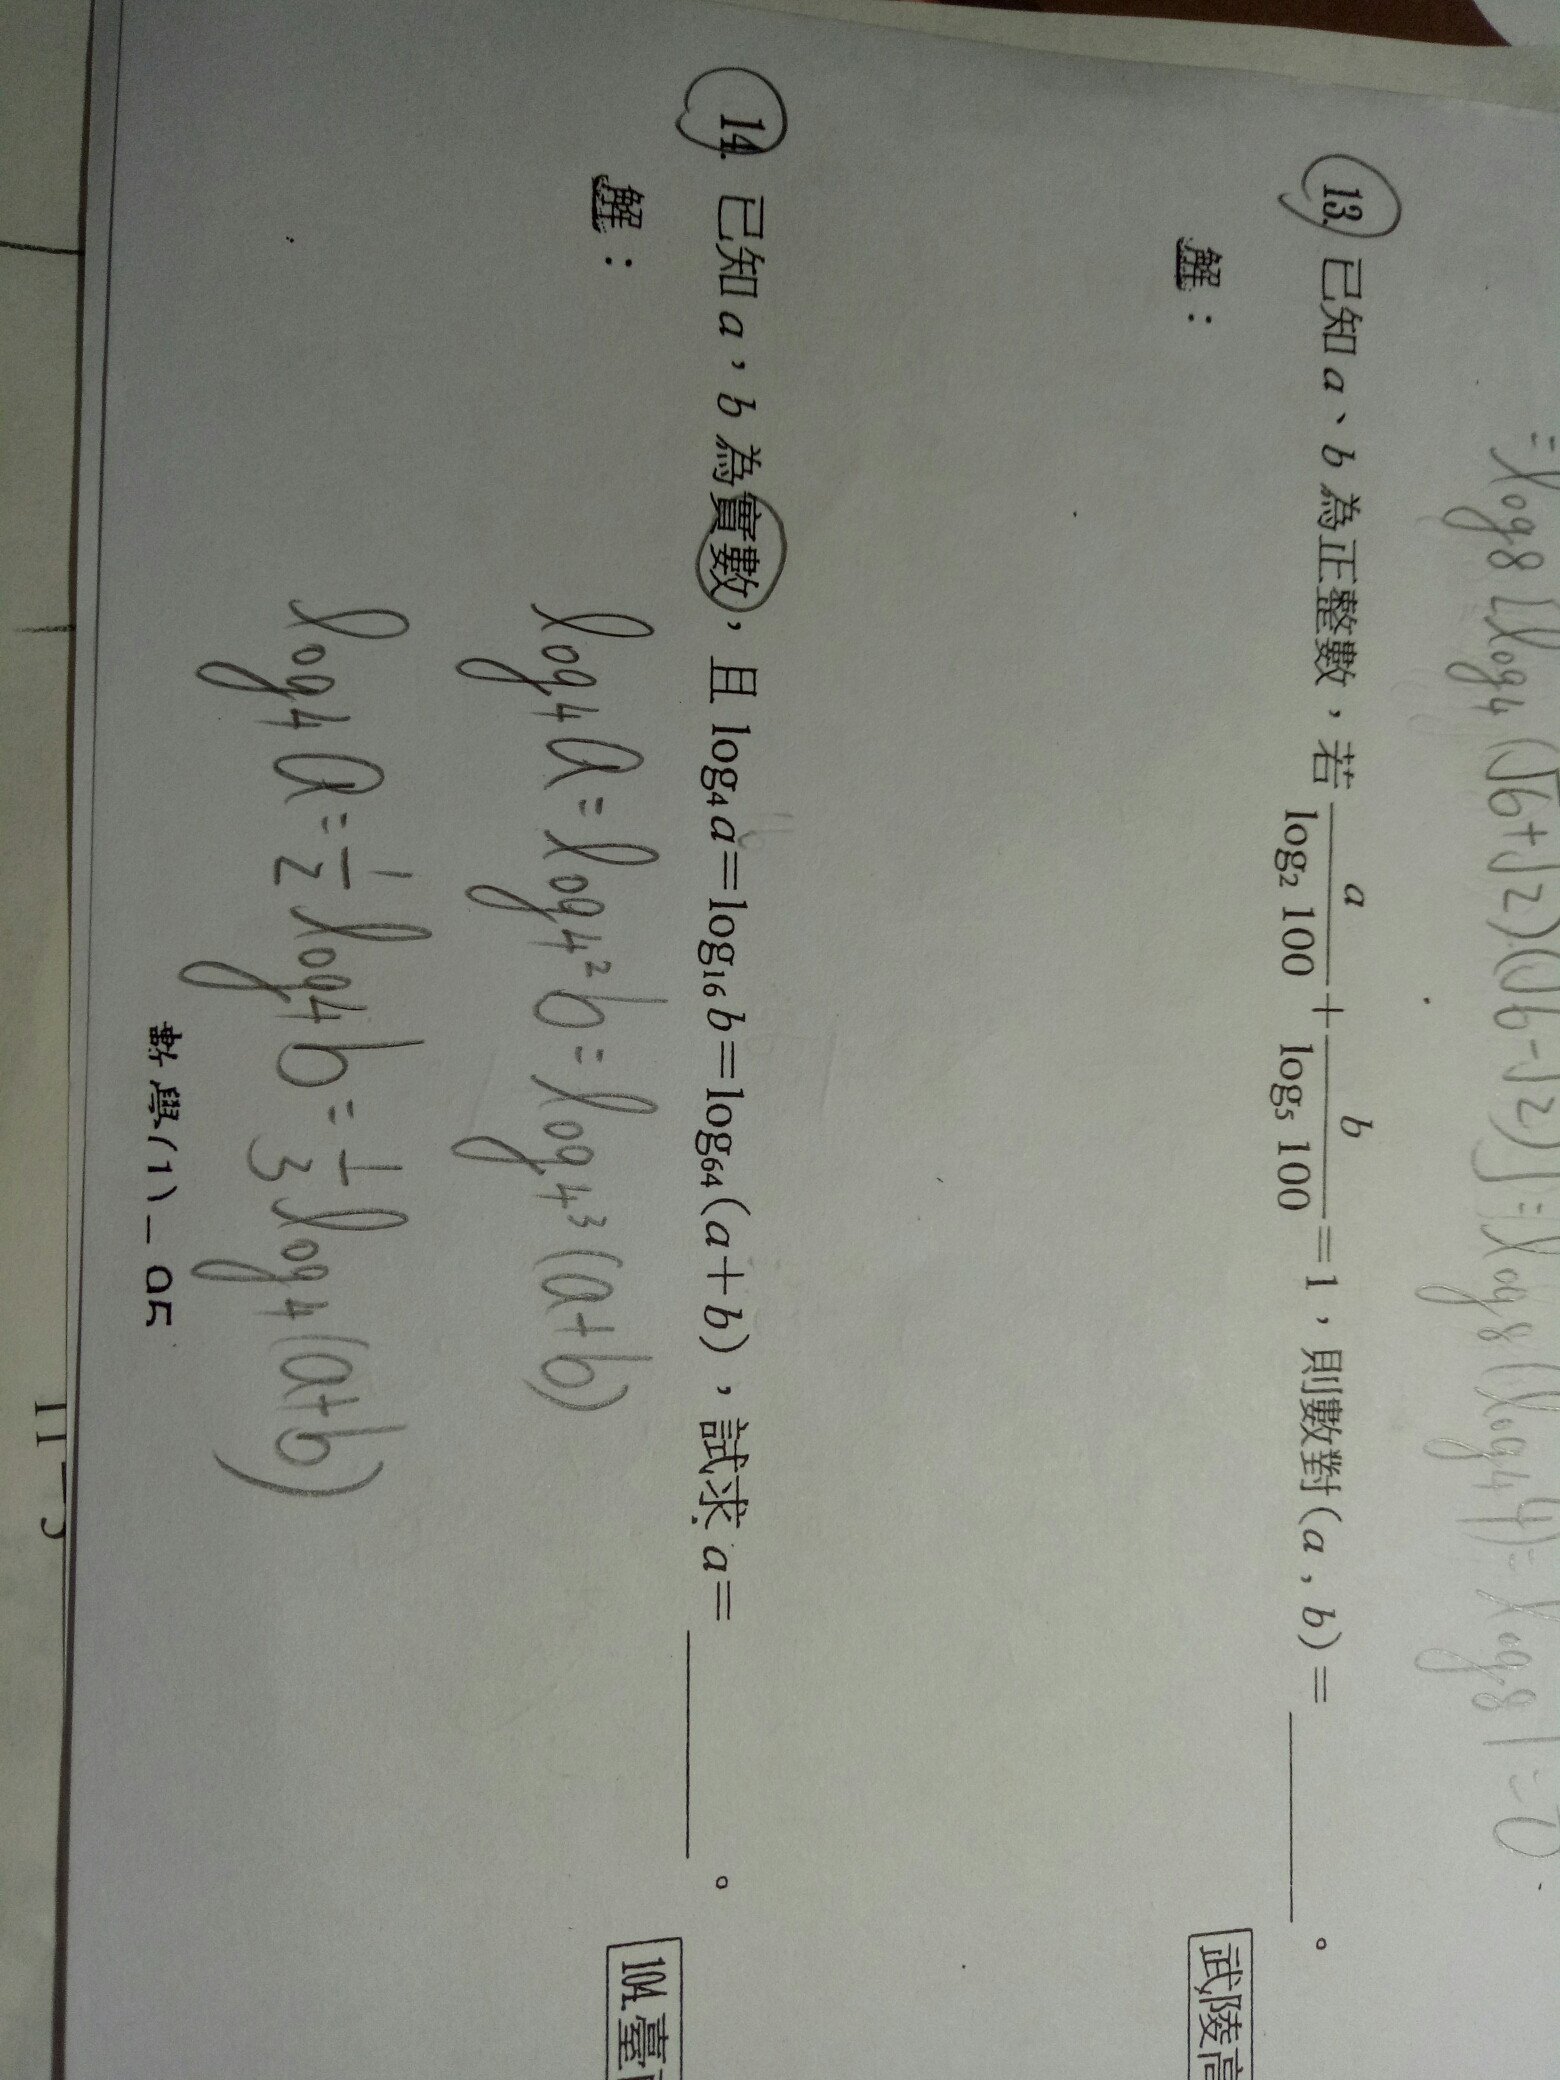 =log8[log4(√6+√2)(√6-√2)]=log8(log4 4)=log8 1=0
13. 已知a、b為正整數，若 a/log₂100 + b/log₅100 =1，則數對(a,b)=________。
武陵高
解：
14. 已知a，b為實數，且log₄a=log₁₆b=log₆₄(a+b)，試求a=________。
104.臺
解：
log₄a=log₄²b=log₄³(a+b)
log₄a=1/2log₄b=1/3log₄(a+b)
數學(1)_05